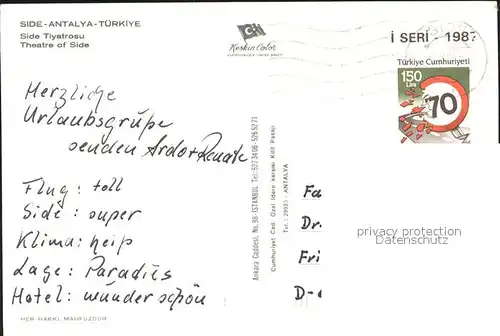 SIDE-ANTALYA-TÜRKİYE
Side Tiyatrosu
Theatre of Side
Keskin Color
İ SERİ - 198?
Türkiye Cumhuriyeti
150
Lira
70
Herzliche
Urlaubsgrüße
senden Ardo+Renate
Flug: toll
Side: super
Klima: heiß
Lage: Paradies
Hotel: wunderschön
HER HAKKI MAHFUZDUR
Ankara Caddesi, No. 98-İSTANBUL Tel: 5273406-5265271
Cumhuriyet Cad. Özel İdare karşısı Kilit Pasajı
Tel.: 29923 - ANTALYA
Fa
Dr.
Fri
D-
privacy protection
Datenschutz